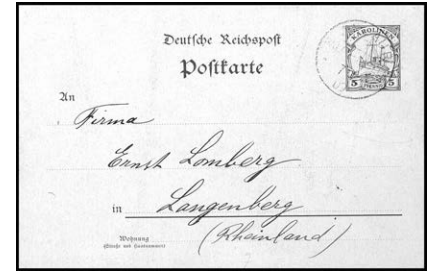 Deutsche Reichspost
Postkarte
KAROLINEN
5 5
An
Firma
Ernst Lomberg
in Langenberg
(Rheinland)
Wohnung
(Straße und Hausnummer)